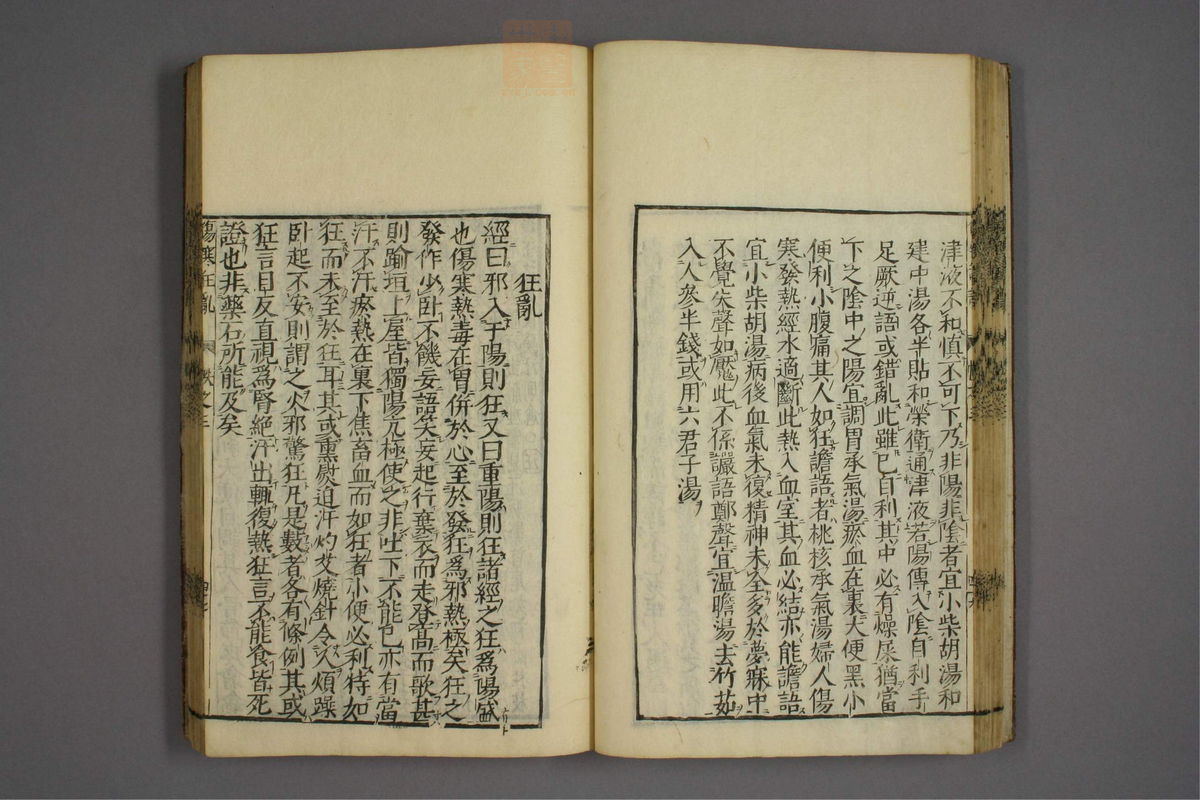 津液不和慎不可下乃非陽非陰者宜小柴胡湯和
建中湯各半貼和榮衛通津液若陽傳入陰自利手
足厥逆語或錯亂此雖已自利其中必有燥屎猶當
下之陰中之陽宜調胃承氣湯瘀血在裏大便黑小
便利小腹痛其人如狂譫語者桃核承氣湯婦人傷
寒發熱經水適斷此熱入血室其血必結亦能譫語
宜小柴胡湯病後血氣未復精神未全多於夢寐中
不覺失聲如魘此不係讝語鄭聲宜温膽湯去竹茹
入人參半錢或用六君子湯
狂亂
經曰邪入于陽則狂又曰重陽則狂諸經之狂爲陽盛
也傷寒熱毒在胃併於心至於發狂爲邪熱極矣狂之
發作少卧不饑妄語笑妄起行棄衣而走登高而歌甚
則踰垣上屋皆獨陽亢極使之非吐下不能已亦有當
汗不汗瘀熱在裏下焦畜血而如狂者小便必利特如
狂而未至於狂耳其或熏熨迫汗灼艾燒針令人煩躁
卧起不安則謂之火邪驚狂凡是數者各有條例其或
狂言目反直視爲腎絶汗出輒復熱狂言不能食皆死
證也非藥石所能及矣
傷寒狂亂 卷之三